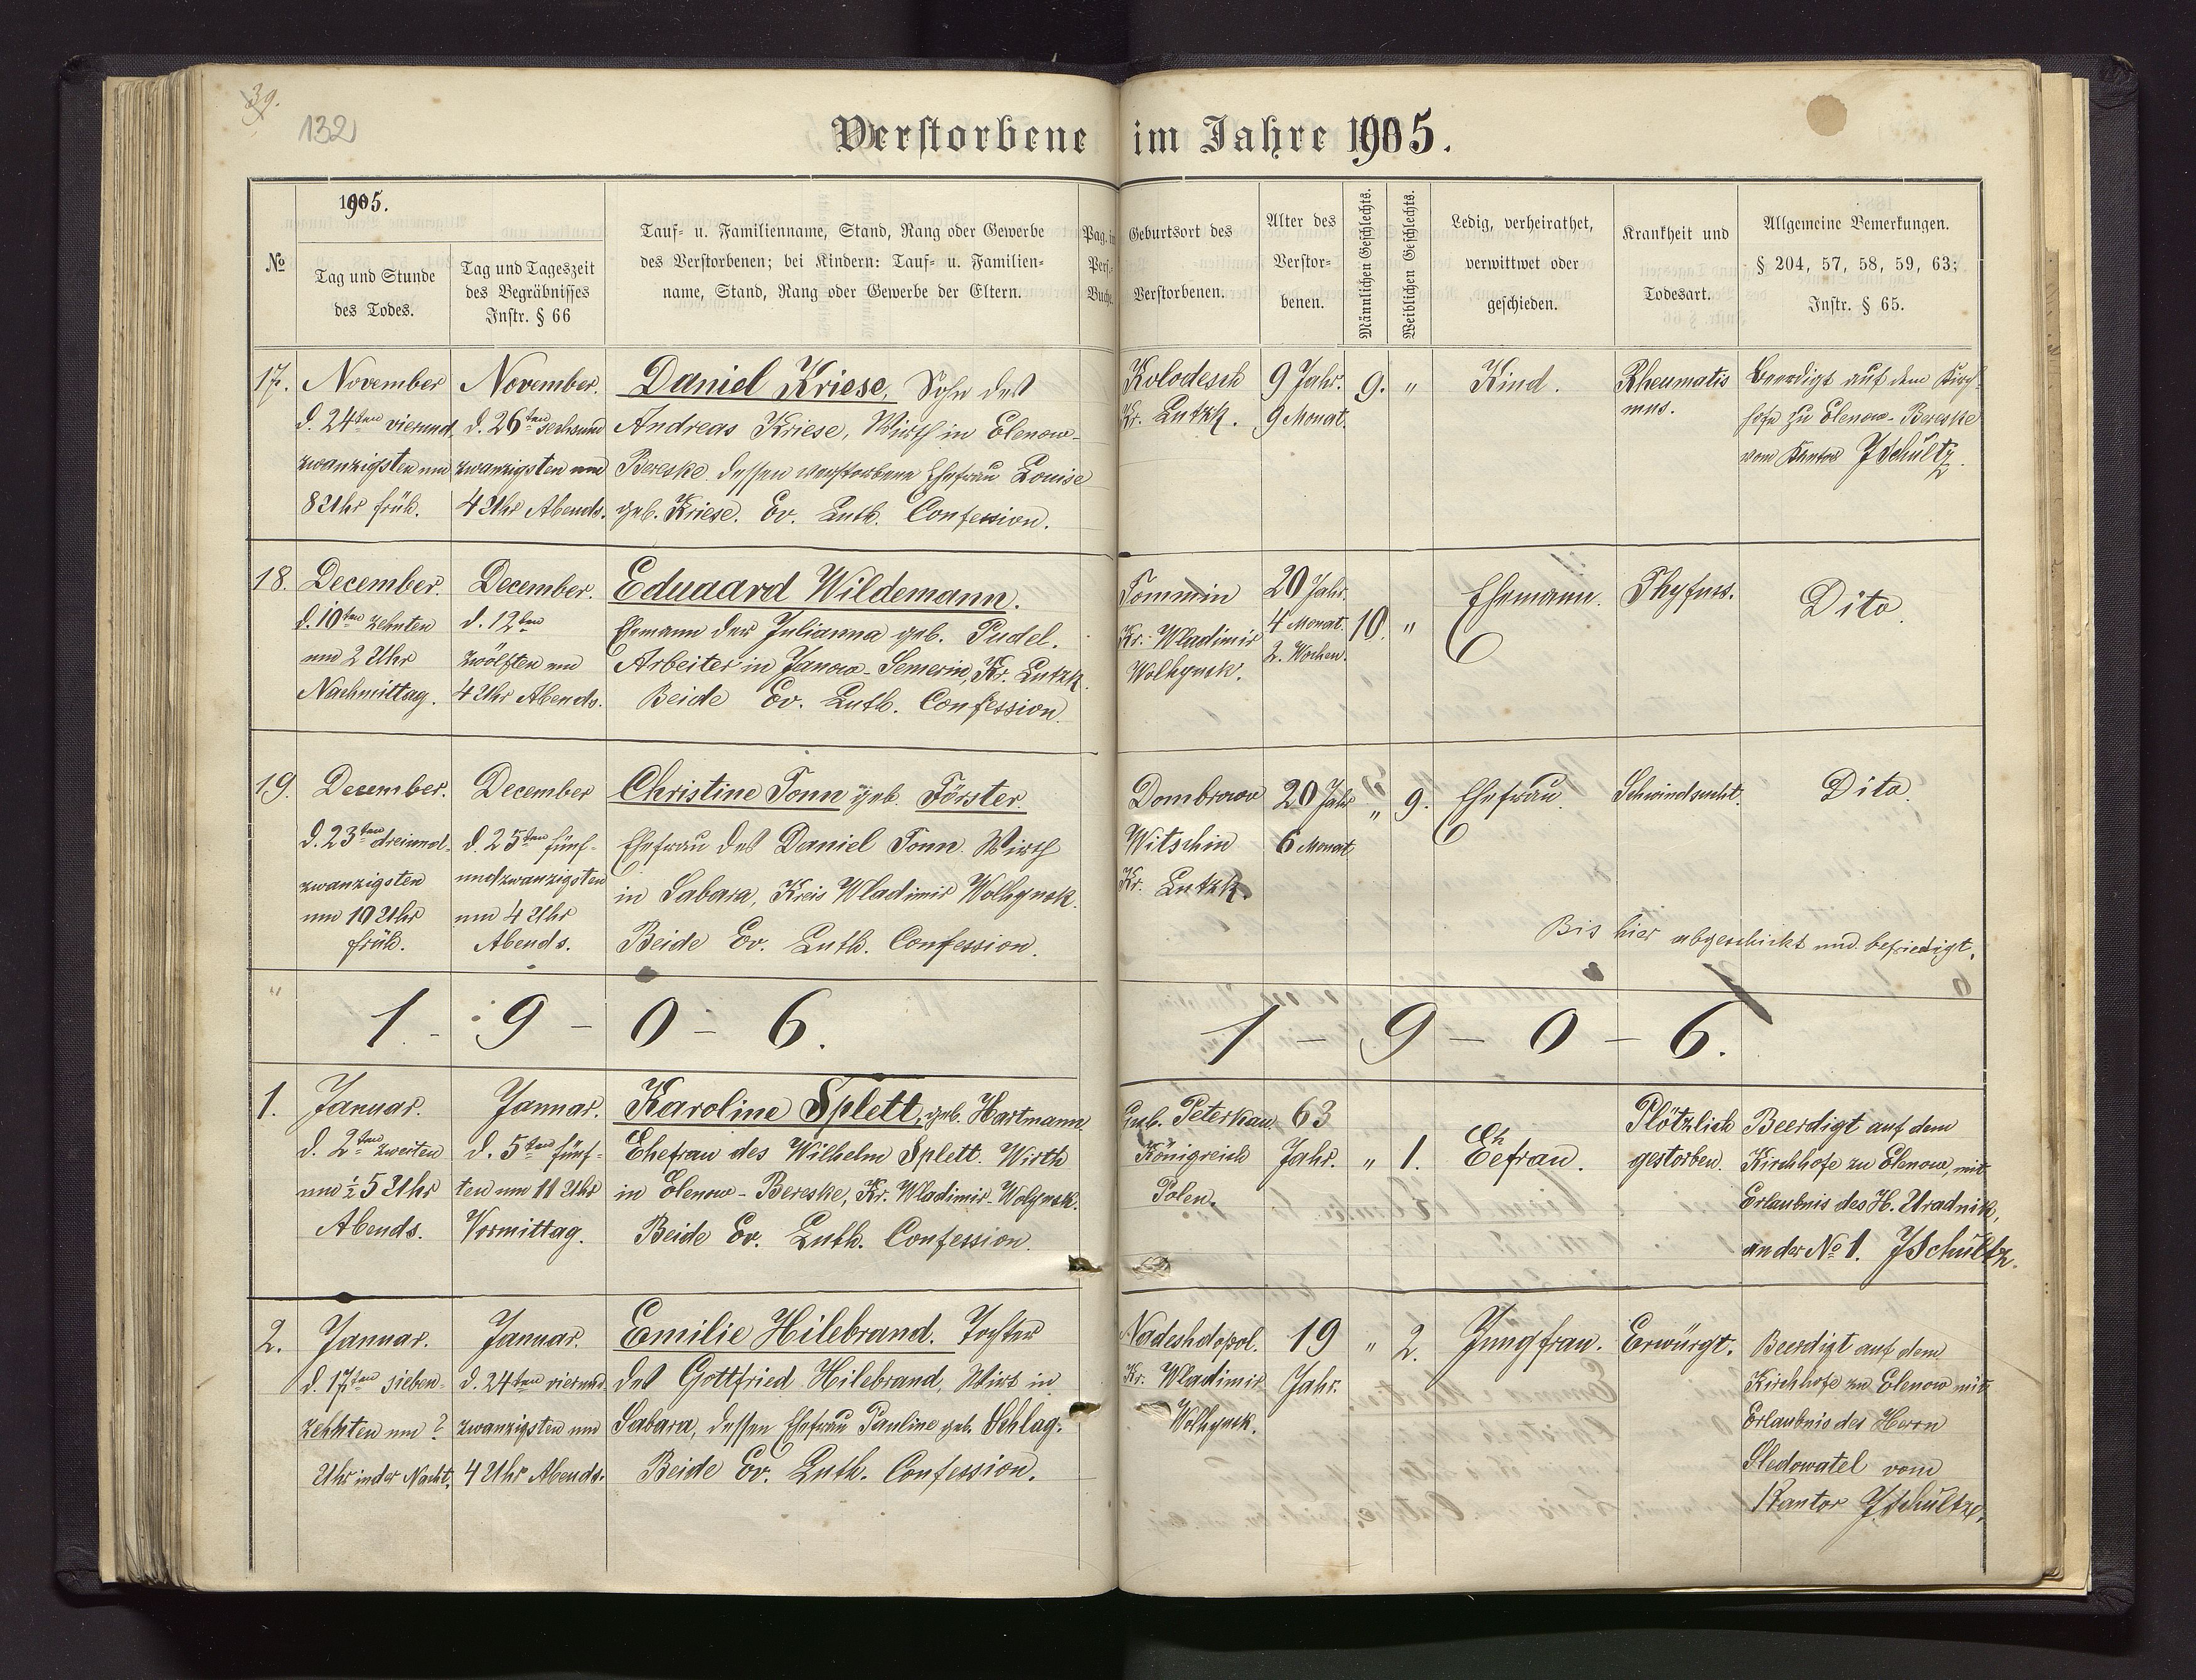 39.
132
Verstorbene im Jahre 1905.
№
1905.
Tag und Stunde
des Todes.
Tag und Tageszeit
des Begräbnisses
Instr. § 66
Tauf- u. Familienname, Stand, Rang oder Gewerbe
des Verstorbenen; bei Kindern: Tauf- u. Familien-
name, Stand, Rang oder Gewerbe der Eltern.
Pag. in
Pers.-
Buche.
Geburtsort des
Verstorbenen.
Alter des
Verstor-
benen.
Männlichen Geschlechts.
Weiblichen Geschlechts.
Ledig, verheirathet,
verwittwet oder
geschieden.
Krankheit und
Todesart.
Allgemeine Bemerkungen.
§ 204, 57, 58, 59, 63;
Instr. § 65.
17.
November
d. 24ten vierund
zwanzigsten um
8 Uhr früh.
November.
d. 26ten sechsund
zwanzigsten um
4 Uhr Abends.
Daniel Kriese, Sohn des
Andreas Kriese, Wirth in Elenow-
Bereske dessen verstorbene Ehefrau Louise
geb. Kriese. Ev. Luth. Confession.
Kolodesch
Kr. Lutzk.
9 Jahr.
9 Monat.
9.
"
Kind.
Rheumatis
mus.
Beerdigt auf dem Kirch-
hofe zu Elenow-Bereske
vom Kantor JSchultz.
18.
December.
d. 10ten zehnten
um 2 Uhr
Nachmittag.
December.
d. 12ten
zwölften um
4 Uhr Abends.
Eduaard Wildemann.
Ehemann der Julianna geb. Pudel.
Arbeiter in Janow-Semerin, Kr. Lutzk.
Beide Ev. Luth. Confession.
Tommin
Kr. Wladimir
Wolhynsk.
20 Jahr.
4 Monat.
2. Wochen.
10.
"
Ehemann.
Thyfuss.
Dito
19.
December.
d. 23ten dreiund-
zwanzigsten
um 10 Uhr
früh.
December
d. 25ten fünf-
undzwanzigsten
um 4 Uhr
Abends.
Christine Tonn geb. Förster
Ehefrau des Daniel Tonn. Wirth
in Sabara, Kreis Wladimir Wolhynsk.
Beide Ev. Luth. Confession.
Dombrowo
Witschin
Kr. Lutzk.
20 Jahr
6 Monat
"
9.
Ehefrau.
Schwindsucht.
Dito.
Bis hier abgeschickt und befriedigt.
"
1 - 9 - 0 - 6.
1 - 9 - 0 - 6.
1.
Januar.
d. 2ten zweiten
um ½ 5 Uhr
Abends.
Januar.
d. 5ten fünf-
ten um 11 Uhr
Vormittag.
Karoline Splett, geb. Hartmann
Ehefrau des Wilhelm Splett. Wirth
in Elenow-Bereske, Kr. Wladimir-Wolynsk.
Beide Ev. Luth. Confession.
Gub. Peterkau
Königreich
Polen.
63
Jahr.
"
1.
Ehefrau.
Plötzlich
gestorben.
Beerdigt auf dem
Kirchhofe zu Elenow, mit
Erlaubnis des H. Uradnik,
an der № 1. JSchultz.
2.
Januar.
d. 17ten sieben-
zehnten um ?
Uhr in der Nacht.
Januar.
d. 24ten vierund-
zwanzigsten um
4 Uhr Abends.
Emilie Hilebrand. Tochter
des Gottfried Hilebrand, Wirt in
Sabara, dessen Ehefrau Pauline geb. Schlag.
Beide Ev. Luth. Confession.
Nadeshdopol.
Kr. Wladimir
Wolhynsk.
19
Jahr.
"
2.
Jungfrau.
Erwürgt.
Beerdigt auf dem
Kirchhofe zu Elenow mit
Erlaubnis des Herrn
Sledowatel vom
Kantor JSchultz.